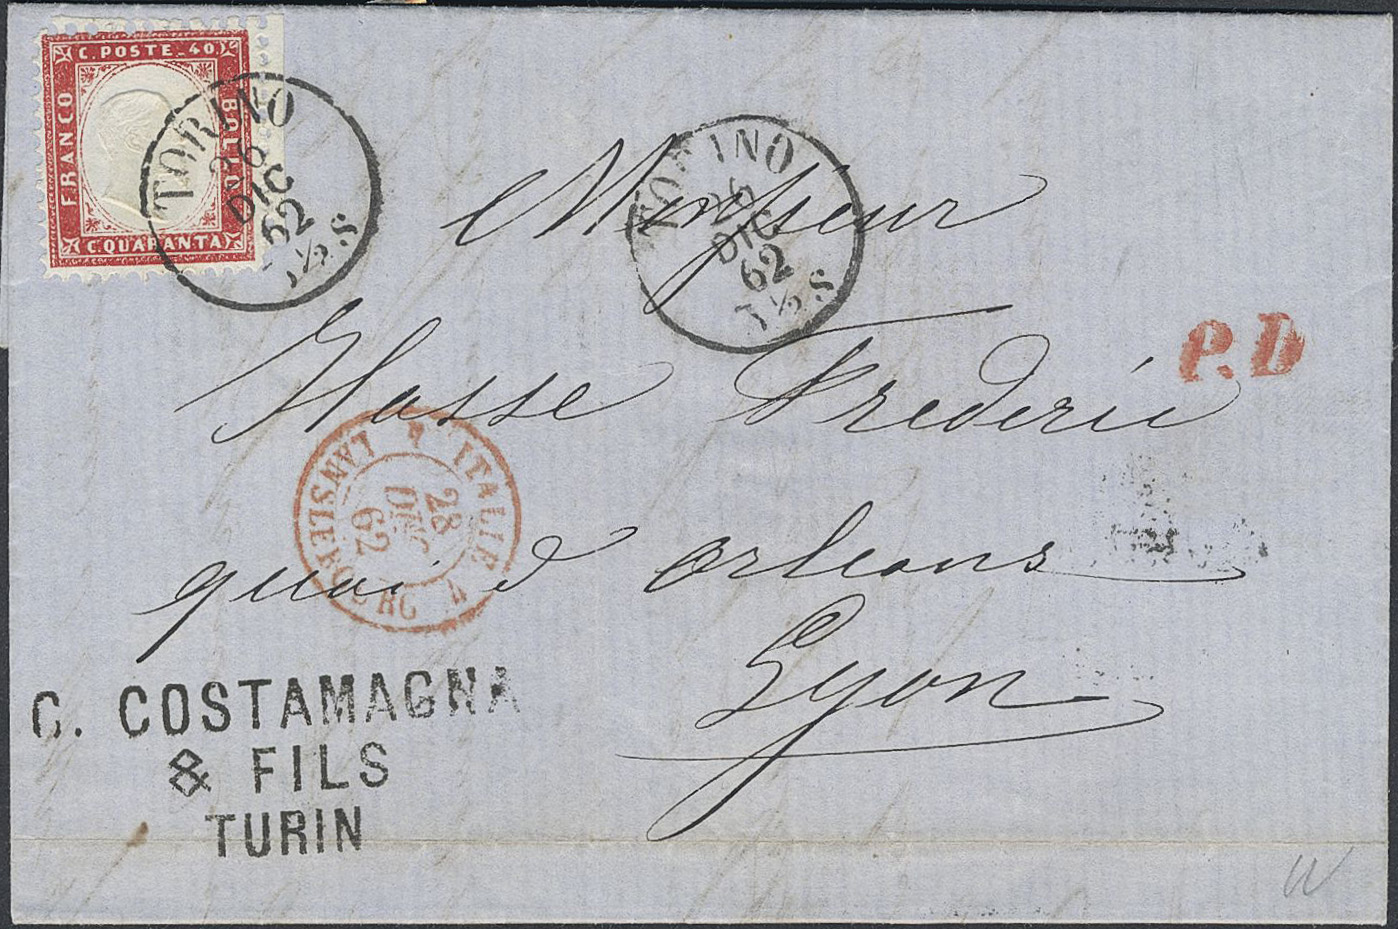 C. POSTE. 40.
FRANCO
BOLLO
C. QUARANTA
TORINO
26
DIC
62
1½ S
TORINO
26
DIC
62
1½ S
Monsieur
P.D
Hasse Frederic
ITALIE
LANSLEBOURG
28
DEC
62
4
quai d orleans
Lyon
C. COSTAMAGNA
& FILS
TURIN